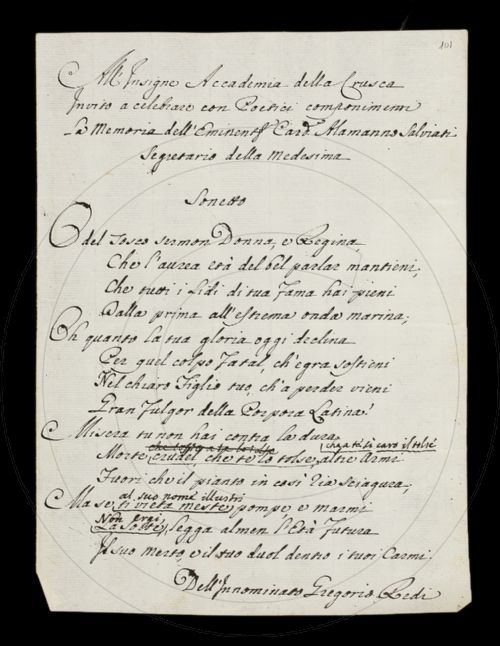 101
All'Insigne Accademia della Crusca
Invito a celebrare con Poetici componimenti
La Memoria dell'Eminent. Card. Alamanno Salviati
Segretario della Medesima
Sonetto
O del Tosco sermon Donna, e Regina,
Che l'aurea età del bel parlar mantieni,
Che tutti i lidi di tua Fama hai pieni
Dalla prima all'estrema onda marina;
Oh quanto la tua gloria oggi declina
Per quel colpo Fatal, ch'egra sostieni
Nel chiaro Figlio tuo, ch'a perder vieni
Gran Fulgor della Porpora Latina!
Misera tu non hai contra la dura
ch'a te sì caro il tolse
Morte crudel, che te lo tolse, altre Armi
Fuori che il pianto in così ria sciagura;
al suo nome illustri
Ma se ti vieta meste pompe e marmi
Non erei
La Sorte, legga almen l'Età Futura
Il suo merto, e il tuo duol dentro i tuoi Carmi.
Dell'Innominato Gregorio Redi